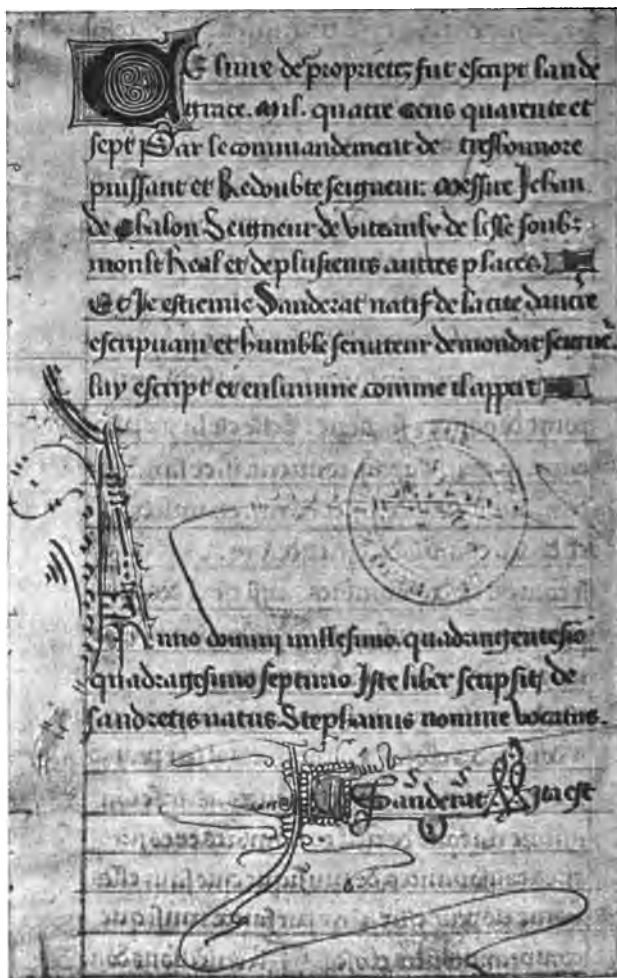 Ce liure de proprietez fut escript lan de
grace. mil. quatre cens quarente et
sept Par le commandement de treshonnore
puissant et Redoubte seigneur messire Jehan
de Chalon Seigneur de viteaulx de lisle soubz
monst Real et de plusieurs autres places
Et Je estienne Sanderat natif de la cite daucrre
escripuain et humble seruiteur de mondit seigne
luy escript et enlumine comme il appart
Anno domini millesimo. quadrangentesio
quadragesimo septimo Iste liber scripsit de
sandretis natus Stephanus nomine vocatus.
Sanderat Ita est